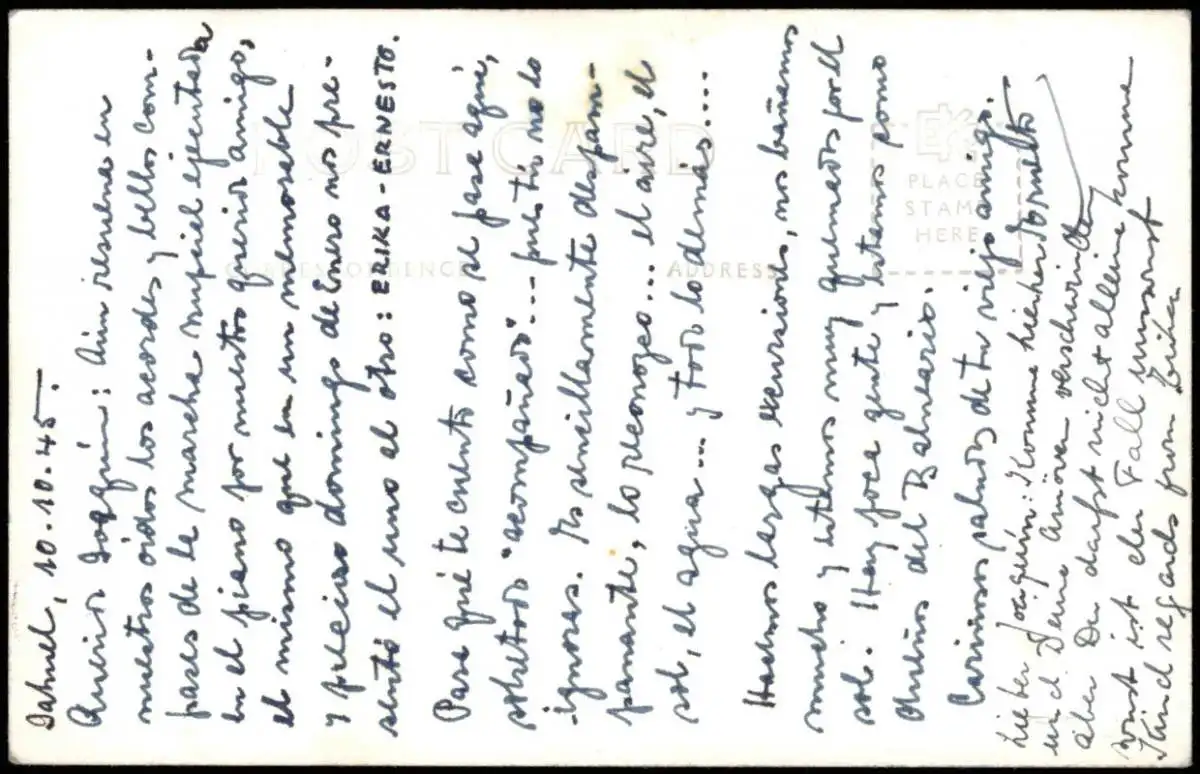 Dahuel, 10.10.45.
Querido Joaquín: Aún resuena en
nuestros oídos los acordes y bellos com-
pases de la marcha nupcial ejecutada
en el piano por nuestro querido amigo,
el mismo que en un memorable
y precioso domingo de Enero nos pre-
sentó el uno al otro: ERIKA - ERNESTO.
Para qué te cuento como se pasa aquí,
sobretodo "acompañado".... pues tú no lo
ignoras. Es sencillamente despam-
panante, lo reconozco... el aire, el
sol, el agua... y todo lo demás....
Hacemos largas excursiones, nos bañamos
mucho y estamos muy quemados por el
sol. Hay poca gente y estamos como
dueños del Balneario.
Cariñosos saludos de tu viejo amigo.
Lieber Joaquín: Komme hierher
und Deine verschwinden
aber Du darfst nicht alleine komme
sonst ist der Fall umsonst
Kind regards from Erika
POST CARD
CORRESPONDENCE
ADDRESS
PLACE
STAMP
HERE